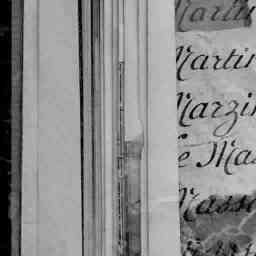 Martin
Martin
Marzi
e Mas
Masso